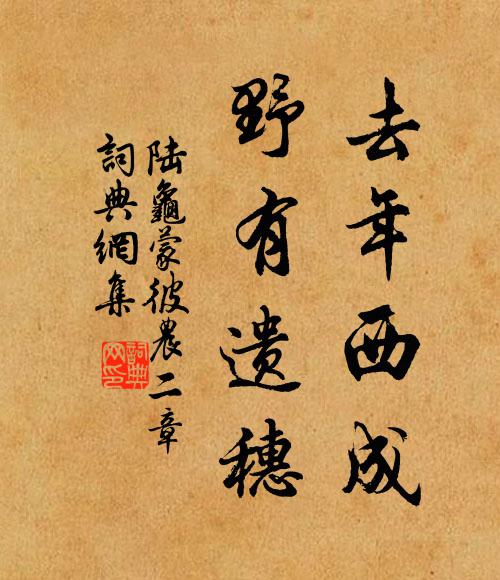 去年西成
野有遗穗
陆龜蒙彼農二章
詞典網集
詞典
网印